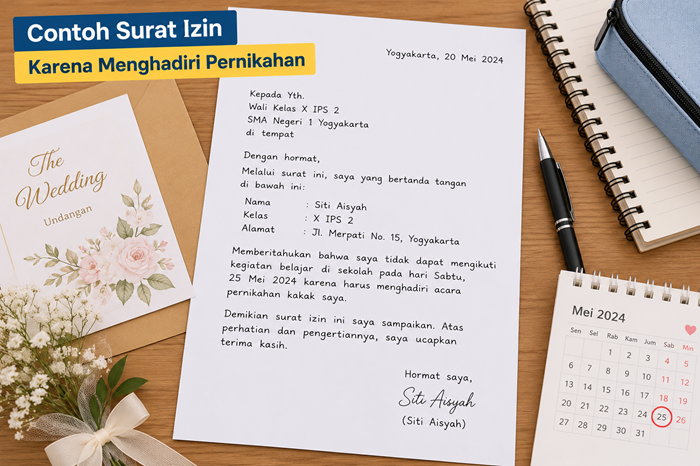 Contoh Surat Izin
Karena Menghadiri Pernikahan
Yogyakarta, 20 Mei 2024
Kepada Yth.
Wali Kelas X IPS 2
SMA Negeri 1 Yogyakarta
di tempat
Dengan hormat,
Melalui surat ini, saya yang bertanda tangan
di bawah ini:
Nama : Siti Aisyah
Kelas : X IPS 2
Alamat : Jl. Merpati No. 15, Yogyakarta
Memberitahukan bahwa saya tidak dapat mengikuti
kegiatan belajar di sekolah pada hari Sabtu,
25 Mei 2024 karena harus menghadiri acara
pernikahan kakak saya.
Demikian surat izin ini saya sampaikan. Atas
perhatian dan pengertiannya, saya ucapkan
terima kasih.
Hormat saya,
Siti Aisyah
(Siti Aisyah)
The
Wedding
Undangan
Mei 2024
Sen Sel Rab Kam Jum Sab Min
1 2 3 4 5
6 7 8 9 10 11 12
13 14 15 16 17 18 19
20 21 22 23 24 25 26
27 28 29 30 31